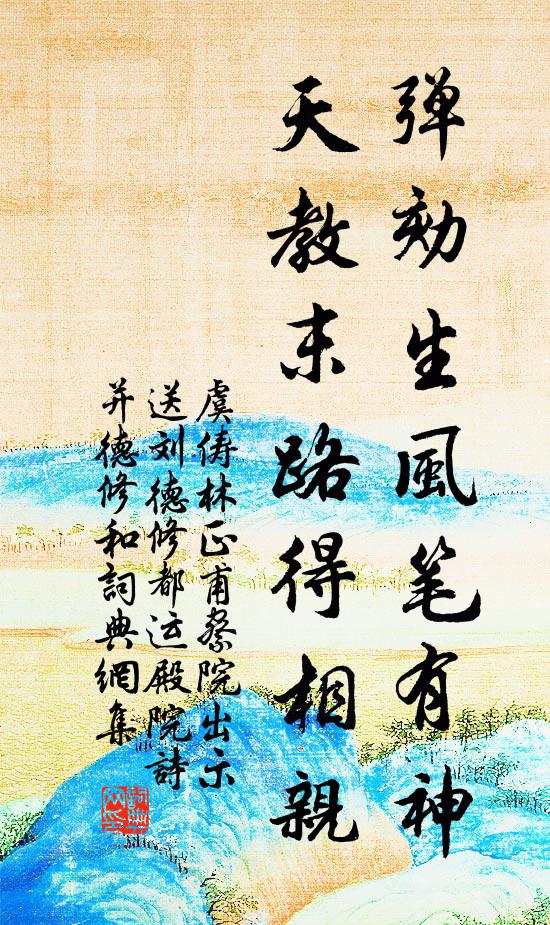 弹劾生風笔有神
天教末路得相親
虞俦林正甫察院出示
送刘德修都运殿院詩
并德修和詞典網集